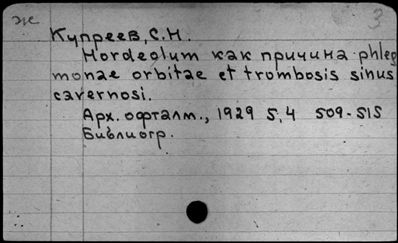 ж 3
Купреев, С.Н.
Hordeolum как причина phleg
monae orbitae et trombosis sinus
cavernosi.
Арх. офталм., 1929 5,4 509-515
Библиогр.